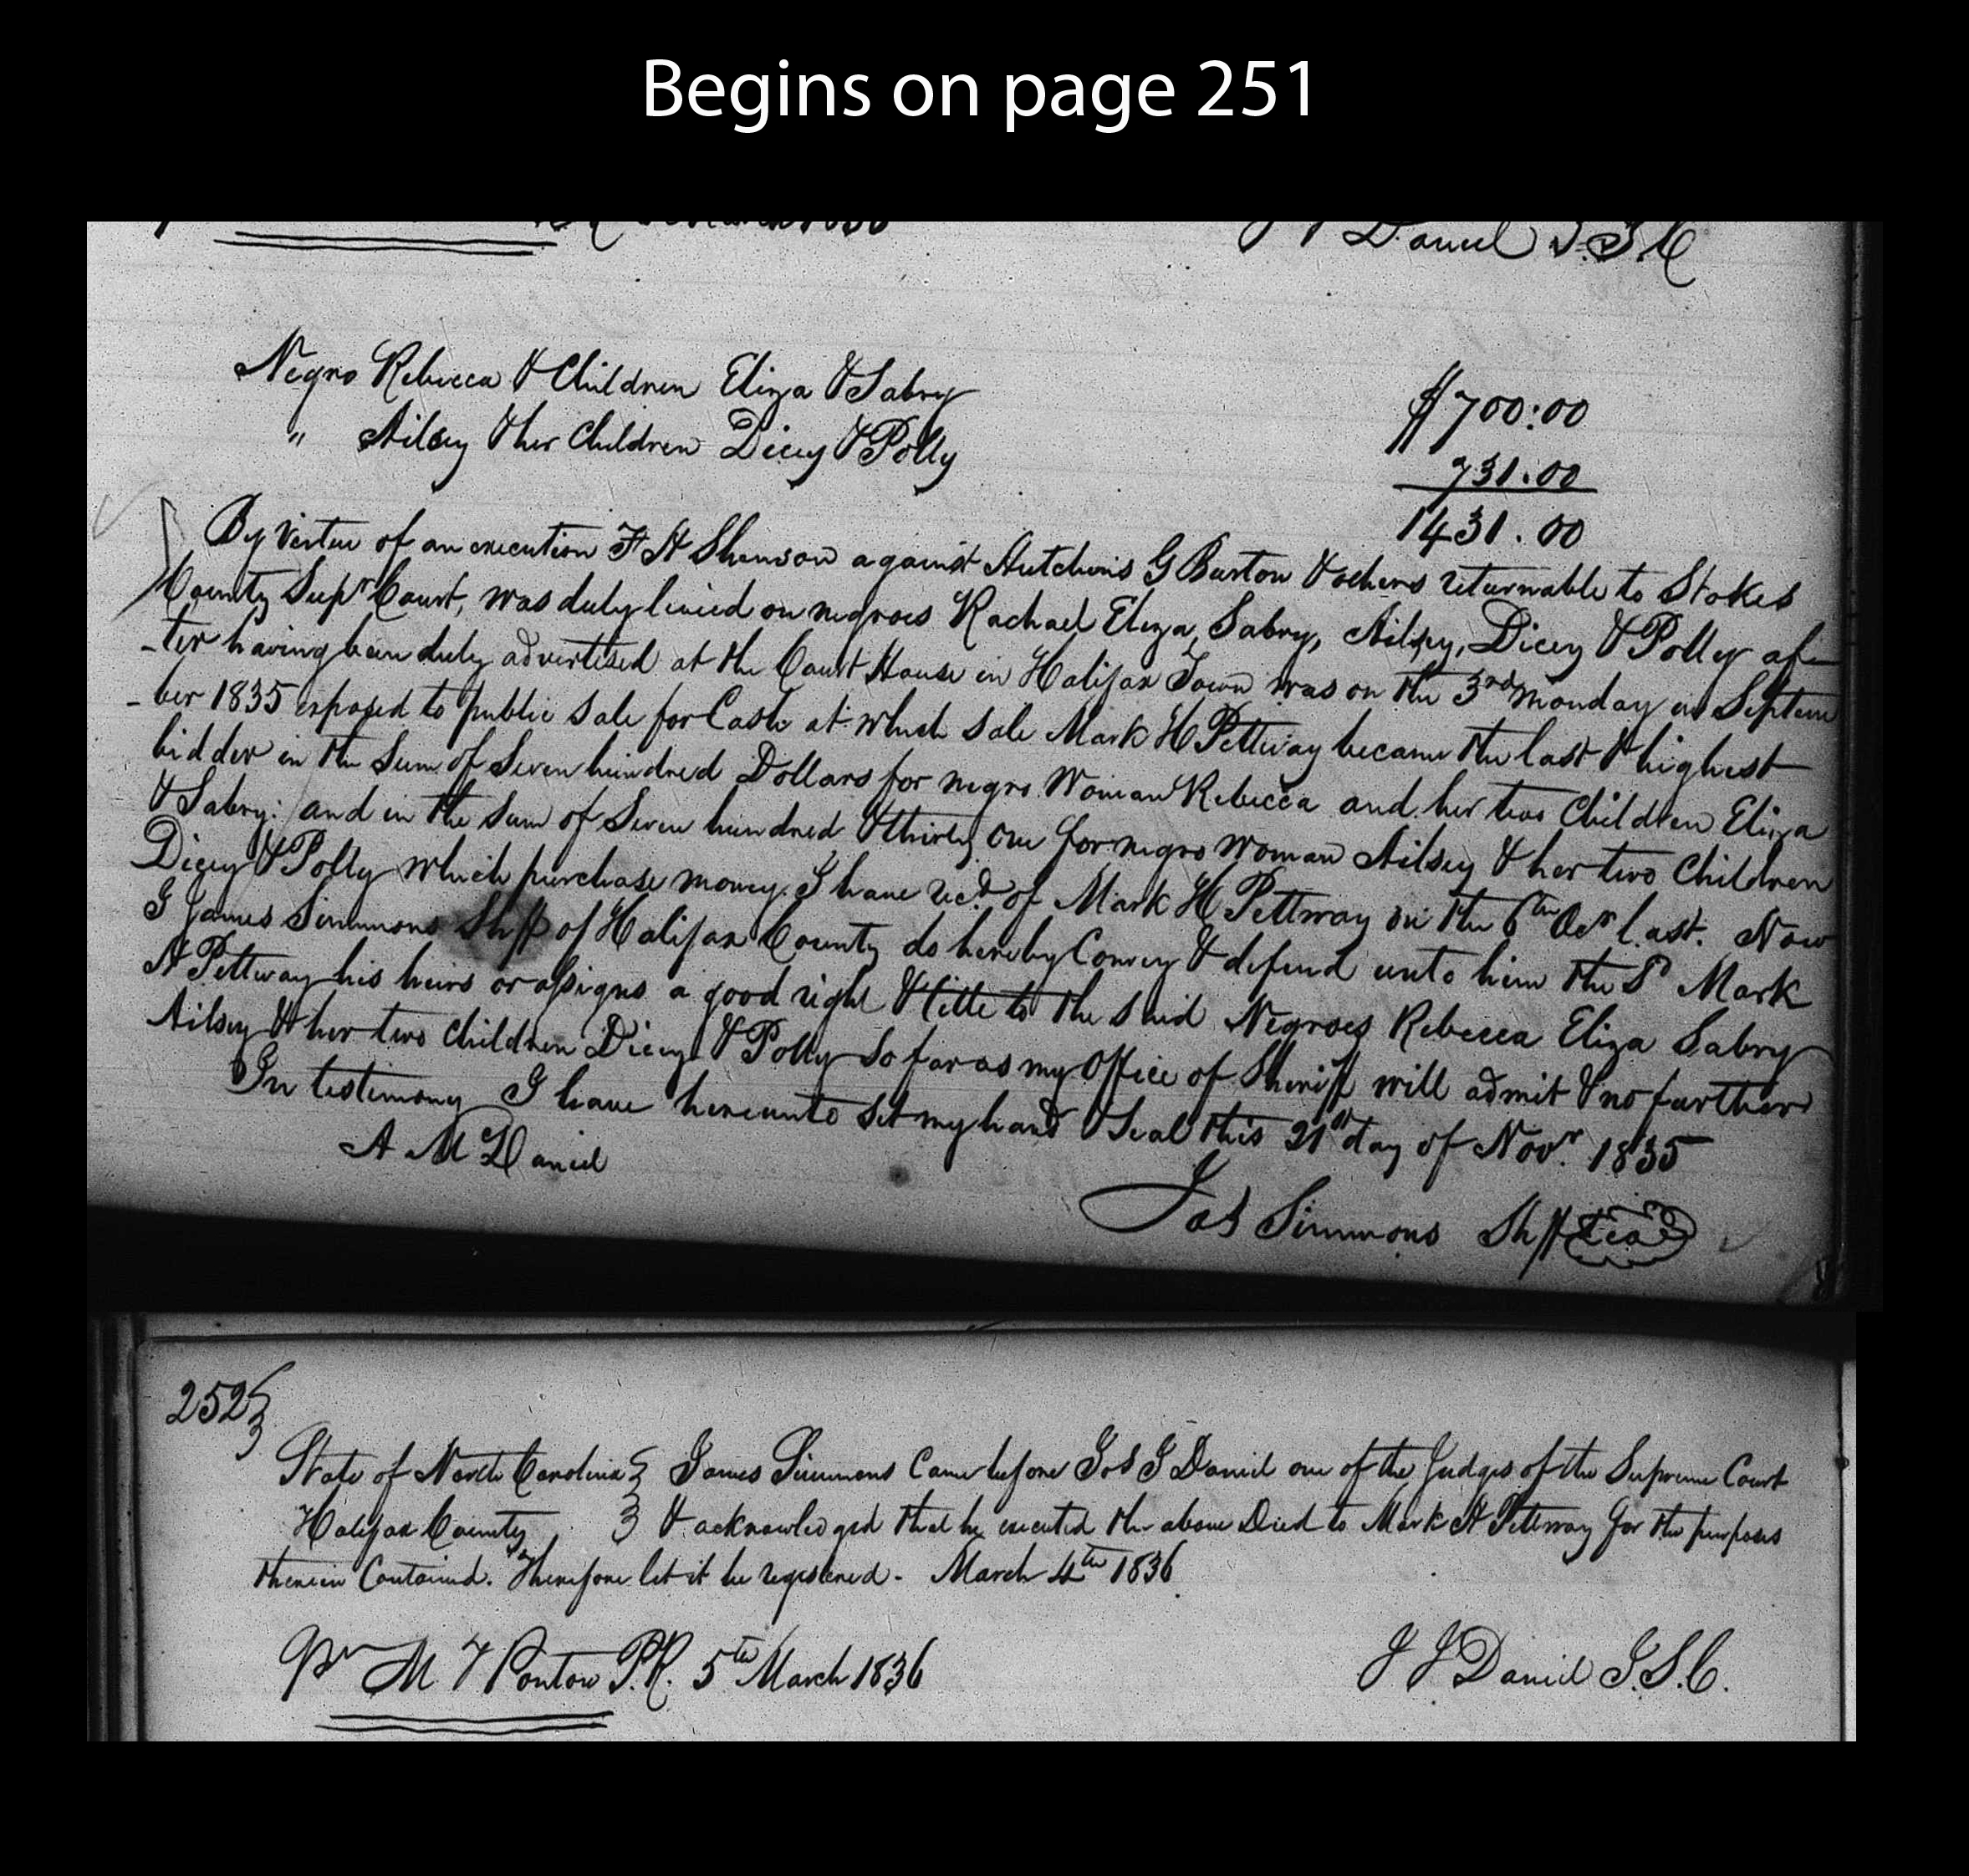 Begins on page 251
J J Daniel J.S.C
Negro Rebecca & Children Eliza & Sabry $700:00
" Ailsey & her Children Dicey & Polly 731.00
1431.00
By Vertue of an execution F H Shewson against Hutchins G Burton & others returnable to Stokes
County Supr Court, was duly levied on negroes Rachael Eliza, Sabry, Ailsey, Dicey & Polly af-
-ter having been duly advertised at the Court House in Halifax Town was on the 3rd Monday in Septem
-ber 1835 exposed to public Sale for Cash at which Sale Mark H Pettway became the last & highest
bidder in the Sum of Seven hundred Dollars for negro Woman Rebecca and her two Children Eliza
& Sabry: and in the Sum of Seven hundred & thirty One for negro Woman Ailsey & her two Children
Dicey & Polly which purchase money I have recd of Mark H Pettway on the 6th Octr last. Now
I James Simmons Shff of Halifax County do hereby Convey & defend unto him the Sd Mark
H Pettway his heirs or assigns a good right & title to the said Negroes Rebecca Eliza Sabry
Ailsey & her two Children Dicey & Polly So far as my Office of Sheriff will admit & no further
In testimony I have hereunto Set my hand & Seal this 21st day of Novr. 1835
A M Daniel
Jas Simmons Shff Seal
252
State of North Carolina James Simmons Came before Jos J Daniel one of the Judges of the Supreme Court
Halifax County & acknowledged that he executed the above Deed to Mark H Pettway for the purposes
therein Contained. Therefore let it be registered. March 4th 1836
Pr M T Ponton P.R. 5th March 1836 J J Daniel J.S.C.